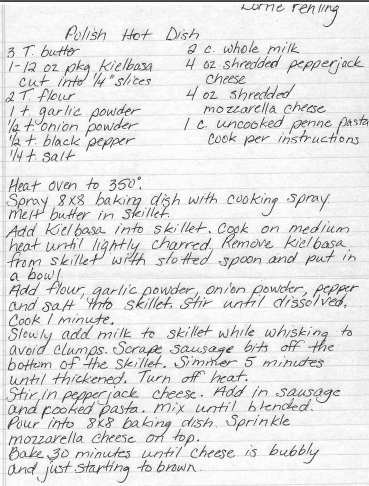 Lorne Fehling
Polish Hot Dish
3 T. butter
1-12 oz pkg Kielbasa
cut into 1/4" slices
2 T flour
1 t garlic powder
1/2 t. onion powder
1/2 t. black pepper
1/4 t. salt
2 c. whole milk
4 oz shredded pepperjack
cheese
4 oz shredded
mozzarella cheese
1 c. uncooked penne pasta
cook per instructions
Heat oven to 350°.
Spray 8x8 baking dish with cooking spray
Melt butter in skillet.
Add Kielbasa into skillet. Cook on medium
heat until lightly charred. Remove Kielbasa
from skillet with slotted spoon and put in
a bowl
Add flour, garlic powder, onion powder, pepper
and salt into skillet. Stir until dissolved.
Cook 1 minute.
Slowly add milk to skillet while whisking to
avoid clumps. Scrape sausage bits off the
bottom of the skillet. Simmer 5 minutes
until thickened. Turn off heat.
Stir in pepperjack cheese. Add in sausage
and cooked pasta. Mix until blended.
Pour into 8x8 baking dish. Sprinkle
mozzarella cheese on top.
Bake 30 minutes until cheese is bubbly
and just starting to brown.